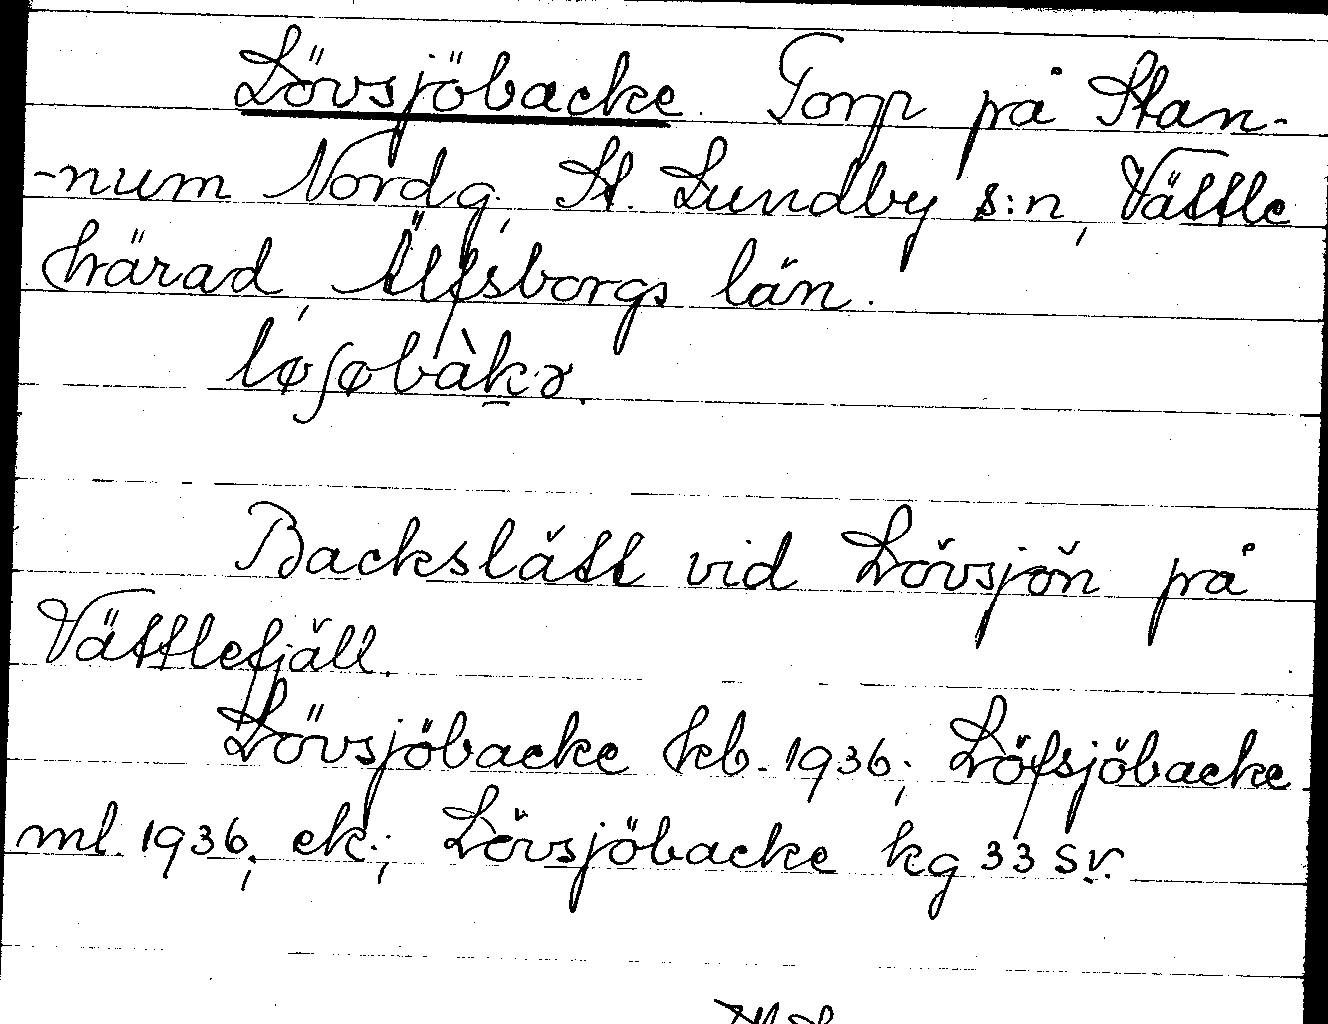 Lövsjöbacke. Torp på Stan-
-num Nordg, St. Lundby s:n, Vättle
härad, Älfsborgs län.
løʃøbàkɤ.
Backslätt vid Lövsjön på
Vättlefjäll.
Lövsjöbacke kb. 1936; Löfsjöbacke
ml. 1936, ek.; Lövsjöbacke kg 33 sv.